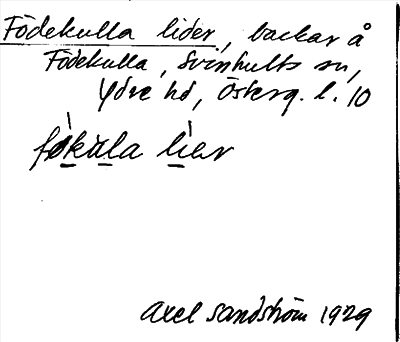 Födekulla lider, backar å
Födekulla, Svinhults sn,
Ydre hd, Österg. l. 10
fø̀kùla lìer
Axel Sandström 1929